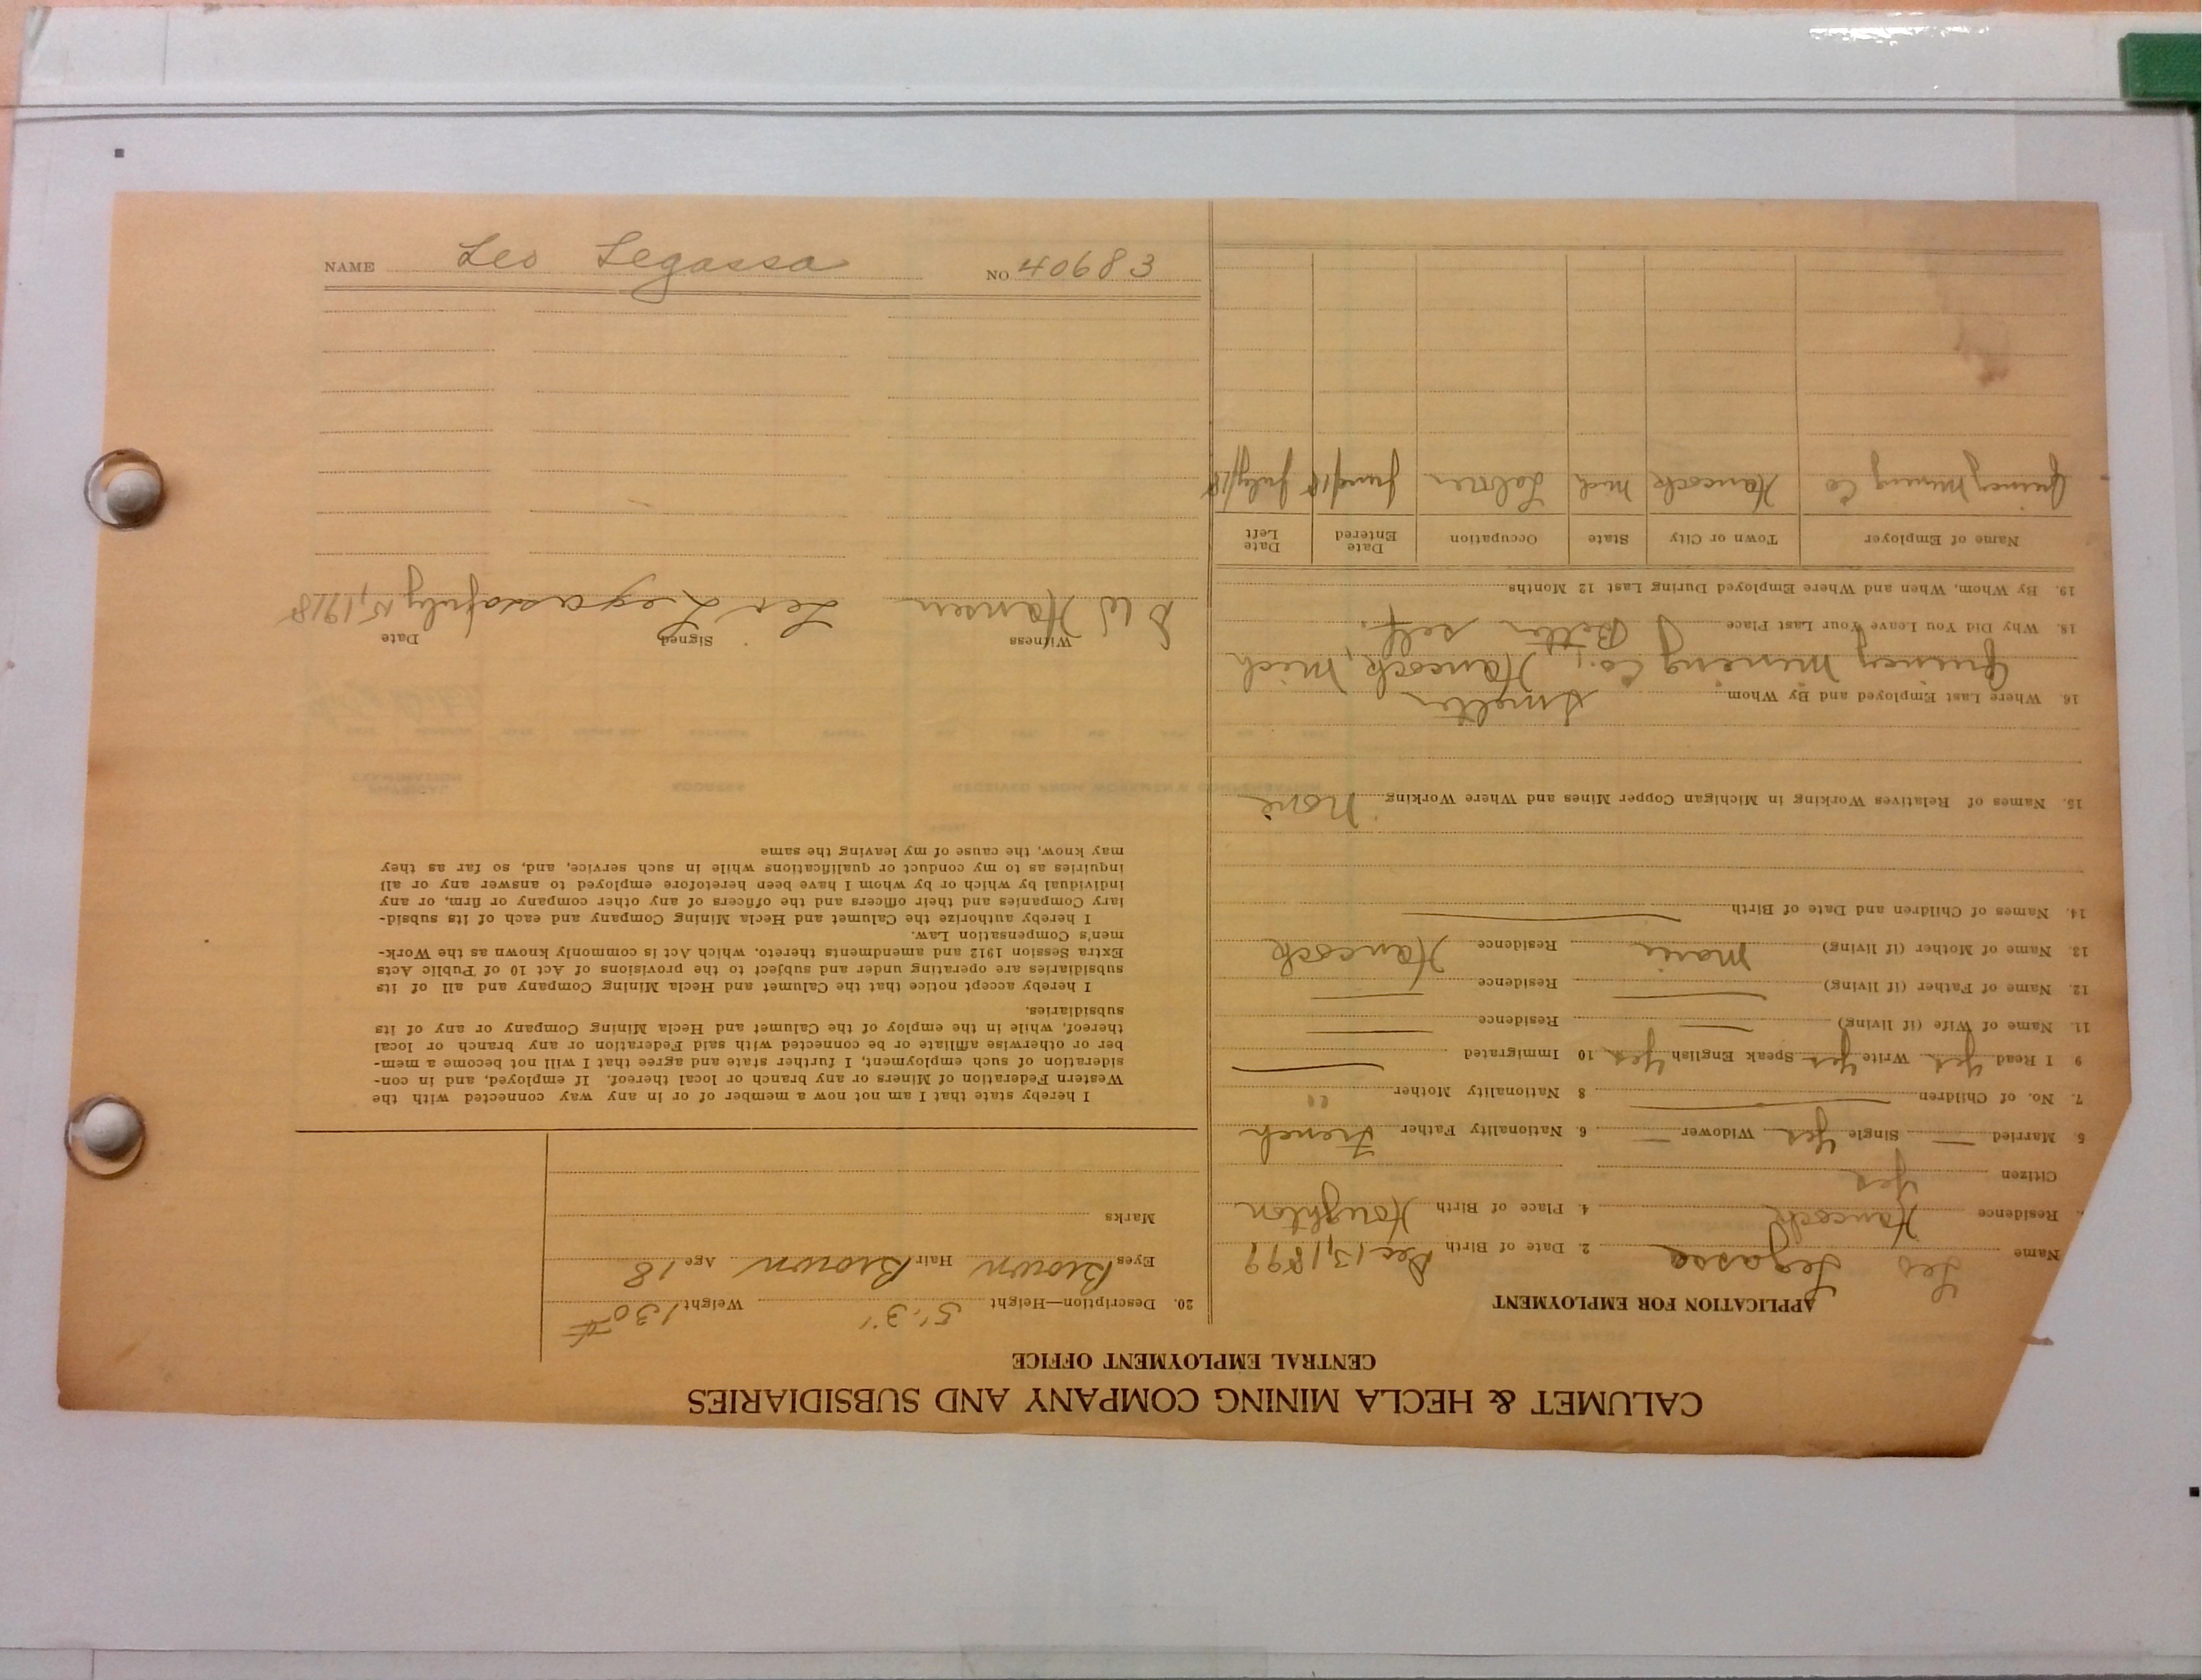 CALUMET & HECLA MINING COMPANY AND SUBSIDIARIES
CENTRAL EMPLOYMENT OFFICE
APPLICATION FOR EMPLOYMENT
Name Leo Legassa 2. Date of Birth Dec 13, 1899
Residence Hancock 4. Place of Birth Houghton
Citizen Yes
5. Married — Single Yes Widower — 6. Nationality Father French
7. No. of Children — 8 Nationality Mother "
9 I Read Yes Write Yes Speak English Yes 10 Immigrated —
11. Name of Wife (if living) — Residence —
12. Name of Father (if living) — Residence —
13. Name of Mother (if living) Marie Residence Hancock
14. Names of Children and Date of Birth —
15. Names of Relatives Working in Michigan Copper Mines and Where Working None
16. Where Last Employed and By Whom Smelter
Quincy Mining Co., Hancock, Mich
18. Why Did You Leave Your Last Place Better self.
19. By Whom, When and Where Employed During Last 12 Months
Name of Employer Town or City State Occupation Date Entered Date Left
Quincy Mining Co Hancock Mich Laborer June/18 July/18
20. Description—Height 5'.3" Weight 130#
Eyes Brown Hair Brown Age 18
Marks
I hereby state that I am not now a member of or in any way connected with the
Western Federation of Miners or any branch or local thereof. If employed, and in con-
sideration of such employment, I further state and agree that I will not become a mem-
ber or otherwise affiliate or be connected with said Federation or any branch or local
thereof, while in the employ of the Calumet and Hecla Mining Company or any of its
subsidiaries.
I hereby accept notice that the Calumet and Hecla Mining Company and all of its
subsidiaries are operating under and subject to the provisions of Act 10 of Public Acts
Extra Session 1912 and amendments thereto, which Act is commonly known as the Work-
men's Compensation Law.
I hereby authorize the Calumet and Hecla Mining Company and each of its subsid-
iary Companies and their officers and the officers of any other company or firm, or any
individual by which or by whom I have been heretofore employed to answer any or all
inquiries as to my conduct or qualifications while in such service, and, so far as they
may know, the cause of my leaving the same
Witness Signed Date
Hansen Leo Legassa July 15, 1918
NAME Leo Legassa NO 40683